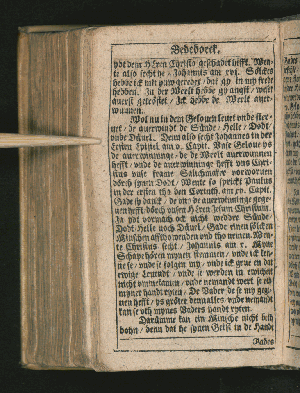 Bedeboeck.
vör dem HEren Christo geschadet hefft. Wen-
te also secht he / Johannis am xvi. Sölckes
hebbe ick mit juw geredet / dat gy in my frede
hebben. In der Werlt hebbe gy angst / weset
auerst getröstet / Ick hebbe de Werlt auer-
wunnen.
Wol nu in dem Gelouen leuet vnde ster-
uet / de auerwindt de Sünde / Helle / Dodt /
vnde Düuel. Denn also secht Johannes in der
Ersten Epistel am v. Capit. Vnse Geloue ys
de auerwinninge / de de Werlt auerwunnen
hefft / vnde de auerwinninge hefft vns Chri-
stus vnse frame Salichmaker vorworuen
dörch synen Dodt / Wente so sprickt Paulus
in der ersten tho den Corinth. am xv. Capit.
Gade sy danck / de vns de auerwinninge gege-
uen hefft dörch vnsen HEren Jesum Christum.
Ja ydt vormach ock nicht wedder Sünde /
Dodt / Helle noch Düuel / Gade einen sölcken
Minschen affthowenden vnd tho nemen. Wen-
te Christus secht / Johannis am x. Myne
Schape hören mynen stemmen / vnde ick ken-
ne se / vnde se folgen my / vnde ick geue en dat
ewige Leuendt / vnde se werden in ewicheit
nicht vmmekamen / vnde nemandt wert se vth
myner handt ryten / De Vader de se my gege-
uen hefft / ys gröter denn alle / vnde nemandt
kan se vth mynes Vaders handt ryten.
Darümme kan ein Minsche nicht beth
dohn / denn dat he synen Geist in de Hande
Vades